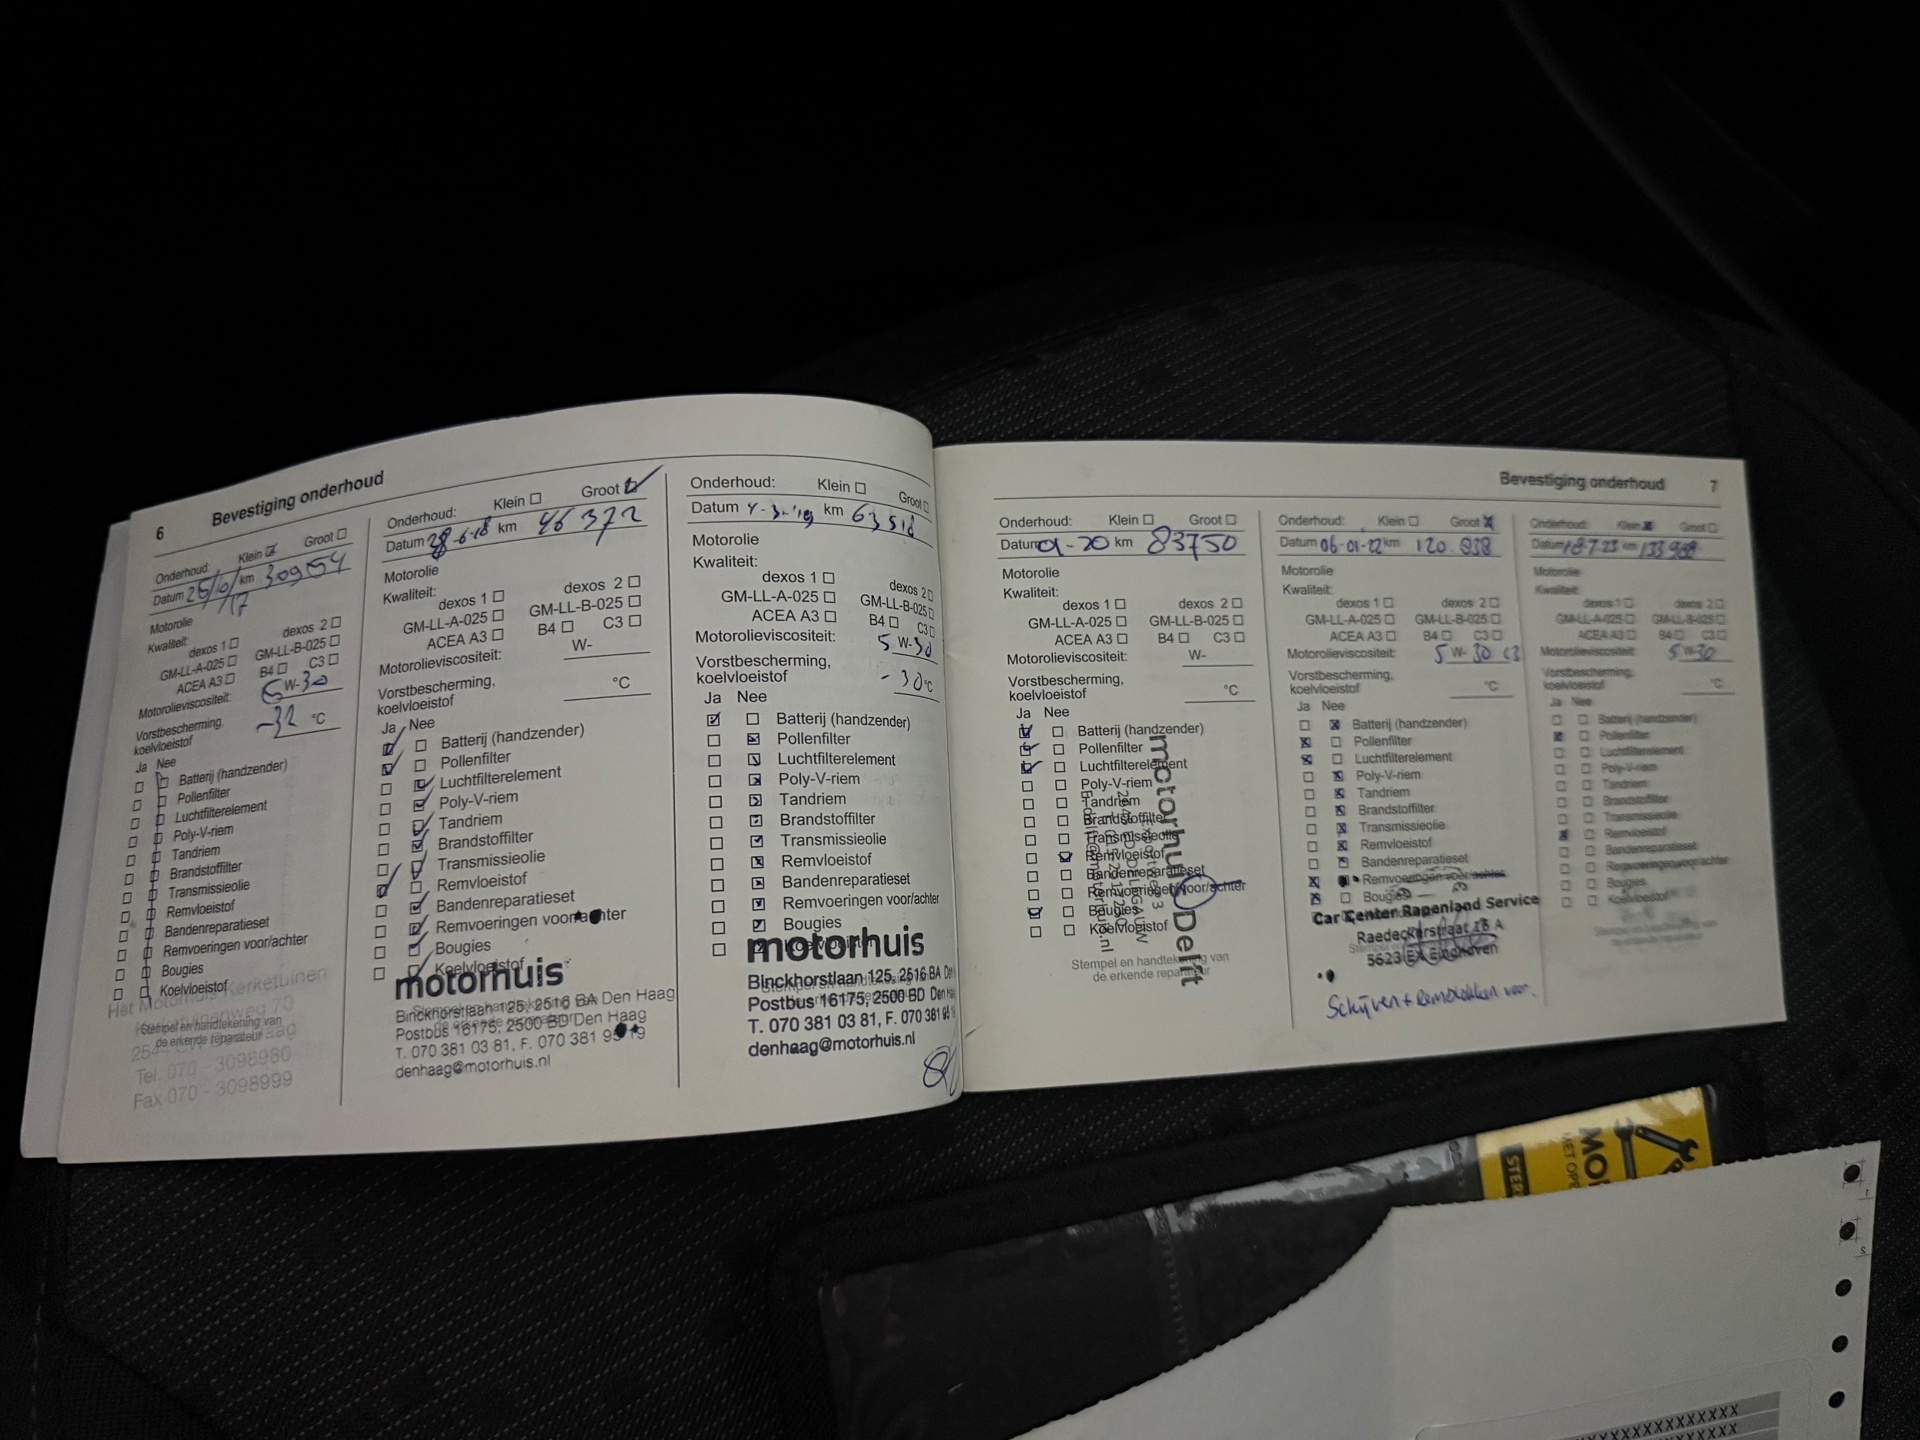 6 Bevestiging onderhoud
Onderhoud: Klein Groot
Datum 25/10/17 km 30954
Motorolie
Kwaliteit:
dexos 1 dexos 2
GM-LL-A-025 GM-LL-B-025
ACEA A3 B4 C3
Motorolieviscositeit: 5 W-30
Vorstbescherming,
koelvloeistof -32 °C
Ja Nee
Batterij (handzender)
Pollenfilter
Luchtfilterelement
Poly-V-riem
Tandriem
Brandstoffilter
Transmissieolie
Remvloeistof
Bandenreparatieset
Remvoeringen voor/achter
Bougies
Koelvloeistof
Het Motorhuis Kerketuinen
Stempel en handtekening van
de erkende reparateur
Tel. 070 - 3098980
Fax 070 - 3098999
Onderhoud: Klein Groot
Datum 28-6-18 km 46372
Motorolie
Kwaliteit:
dexos 1 dexos 2
GM-LL-A-025 GM-LL-B-025
ACEA A3 B4 C3
Motorolieviscositeit: W-
Vorstbescherming,
koelvloeistof °C
Ja Nee
Batterij (handzender)
Pollenfilter
Luchtfilterelement
Poly-V-riem
Tandriem
Brandstoffilter
Transmissieolie
Remvloeistof
Bandenreparatieset
Remvoeringen voor/achter
Bougies
Koelvloeistof
motorhuis
Binckhorstlaan 125, 2516 BA Den Haag
Postbus 16175, 2500 BD Den Haag
T. 070 381 03 81, F. 070 381 95 19
denhaag@motorhuis.nl
Onderhoud: Klein Groot
Datum 4-3-'19 km 63518
Motorolie
Kwaliteit:
dexos 1 dexos 2
GM-LL-A-025 GM-LL-B-025
ACEA A3 B4 C3
Motorolieviscositeit: 5 W-30
Vorstbescherming,
koelvloeistof -30 °C
Ja Nee
Batterij (handzender)
Pollenfilter
Luchtfilterelement
Poly-V-riem
Tandriem
Brandstoffilter
Transmissieolie
Remvloeistof
Bandenreparatieset
Remvoeringen voor/achter
Bougies
Koelvloeistof
motorhuis
Binckhorstlaan 125, 2516 BA
Postbus 16175, 2500 BD Den
T. 070 381 03 81, F. 070 381
denhaag@motorhuis.nl
Bevestiging onderhoud 7
Onderhoud: Klein Groot
Datum 01-20 km 83750
Motorolie
Kwaliteit:
dexos 1 dexos 2
GM-LL-A-025 GM-LL-B-025
ACEA A3 B4 C3
Motorolieviscositeit: W-
Vorstbescherming,
koelvloeistof °C
Ja Nee
Batterij (handzender)
Pollenfilter
Luchtfilterelement
Poly-V-riem
Tandriem
Brandstoffilter
Transmissieolie
Remvloeistof
Bandenreparatieset
Remvoeringen voor/achter
Bougies
Koelvloeistof
motorhuis Delft
Stempel en handtekening van
de erkende reparateur
Onderhoud: Klein Groot
Datum 06-01-22 km 120.838
Motorolie
Kwaliteit:
dexos 1 dexos 2
GM-LL-A-025 GM-LL-B-025
ACEA A3 B4 C3
Motorolieviscositeit: 5 W-30 C3
Vorstbescherming,
koelvloeistof °C
Ja Nee
Batterij (handzender)
Pollenfilter
Luchtfilterelement
Poly-V-riem
Tandriem
Brandstoffilter
Transmissieolie
Remvloeistof
Bandenreparatieset
Remvoeringen voor/achter
Bougies
Car Center Rapenland Service
Raedeckerstraat 18 A
5623 EX Eindhoven
Schijven + Remblokken voor.
Onderhoud: Klein Groot
Datum km
Motorolie
Kwaliteit:
dexos 1 dexos 2
GM-LL-A-025 GM-LL-B-025
ACEA A3 B4 C3
Motorolieviscositeit: 5 W-30
Vorstbescherming,
koelvloeistof °C
Ja Nee
Batterij (handzender)
Pollenfilter
Luchtfilterelement
Poly-V-riem
Tandriem
Brandstoffilter
Transmissieolie
Remvloeistof
Bandenreparatieset
Remvoeringen voor/achter
Bougies
Koelvloeistof
Stempel en handtekening van
de erkende reparateur